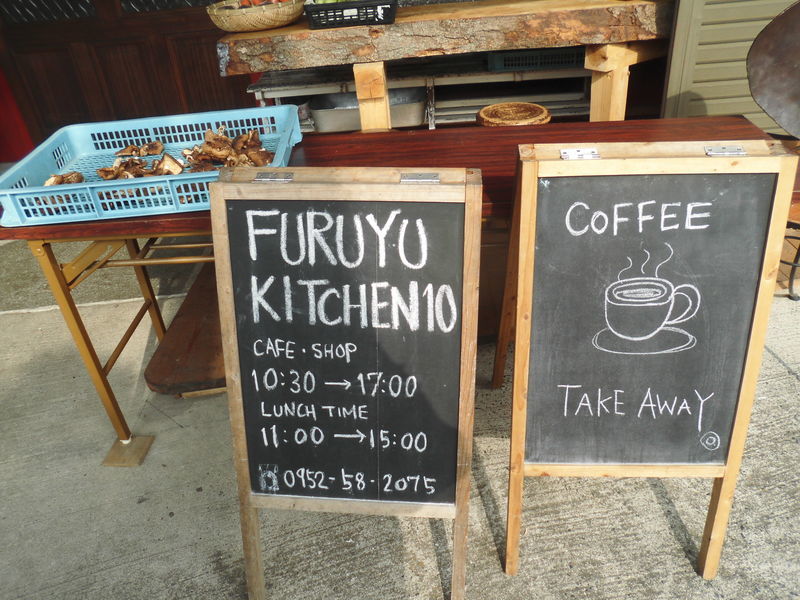 FURUYU
KITCHEN10
CAFE・SHOP
10:30→17:00
LUNCH TIME
11:00→15:00
0952-58-2075
COFFEE
TAKE AWAY